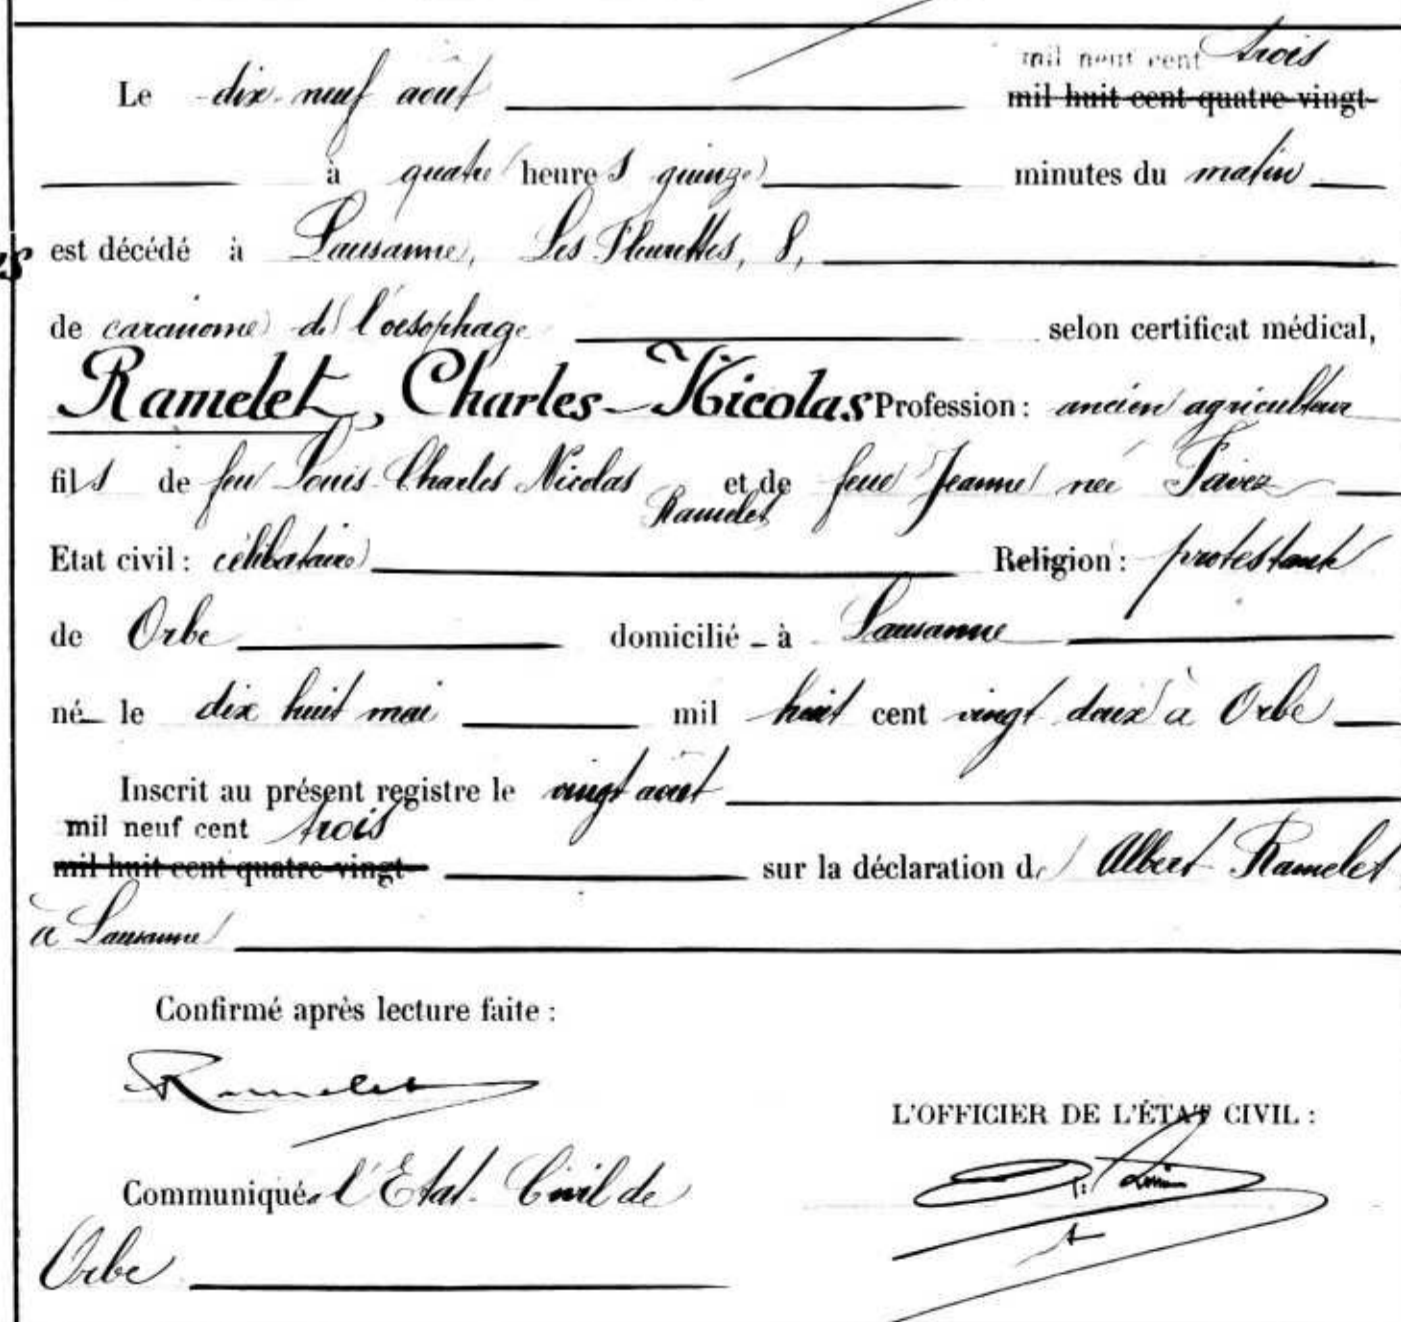 mil neuf cent trois
Le dix-neuf août mil huit cent quatre-vingt-
à quatre heures quinze minutes du matin
est décédé à Lausanne, Les Fleurettes, 8,
de carcinome de l'oesophage selon certificat médical,
Ramelet, Charles-Nicolas Profession: ancien agriculteur
fils de feu Louis-Charles Nicolas Ramelet et de feue Jeanne née Favez
Etat civil: célibataire Religion: protestante
de Orbe domicilié à Lausanne
né le dix huit mai mil huit cent vingt deux à Orbe
Inscrit au présent registre le vingt août
mil neuf cent trois
mil huit cent quatre-vingt- sur la déclaration de Albert Ramelet
à Lausanne
Confirmé après lecture faite:
Ramelet
L'OFFICIER DE L'ÉTAT CIVIL:
Communiqué à l'Etat-Civil de
Orbe